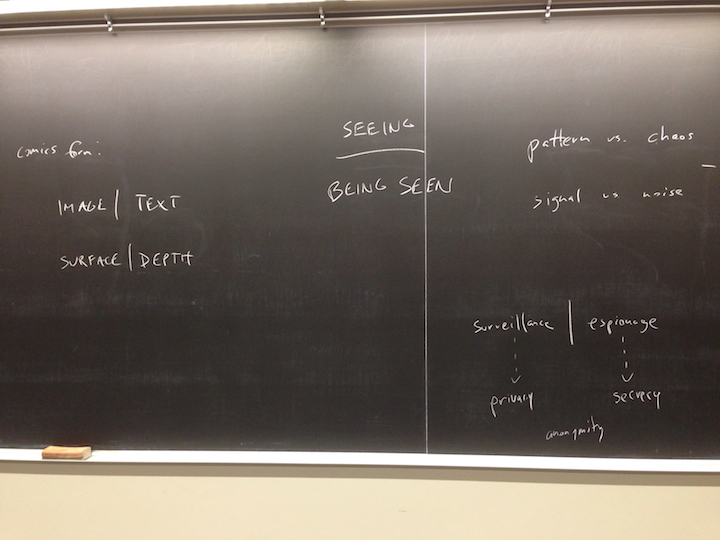 comics form:
IMAGE | TEXT
SURFACE | DEPTH
SEEING
BEING SEEN
pattern vs. chaos
signal vs noise
surveillance | espionage
privacy secrecy
anonymity